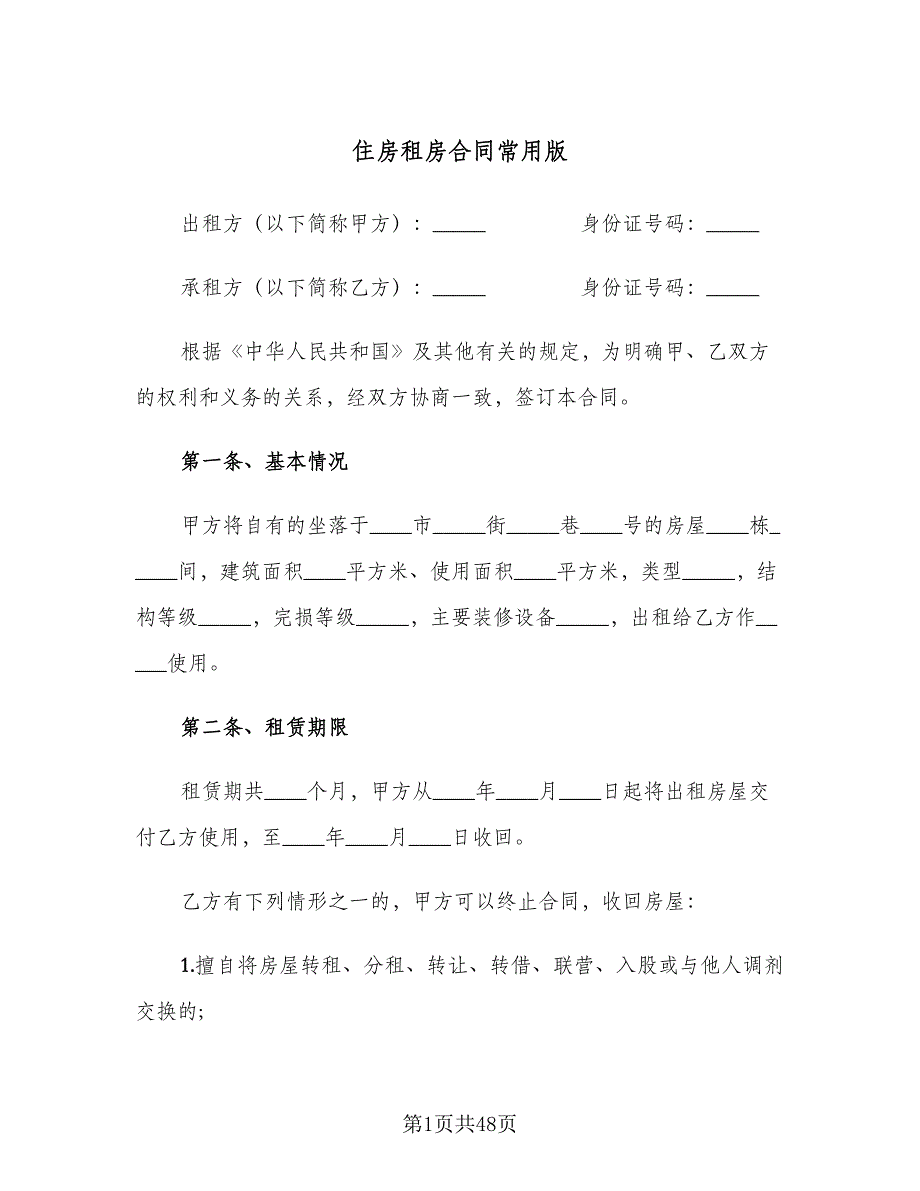 住房租房合同常用版
出租方（以下简称甲方）：_____ 身份证号码：_____
承租方（以下简称乙方）：_____ 身份证号码：_____
根据《中华人民共和国》及其他有关的规定，为明确甲、乙双方
的权利和义务的关系，经双方协商一致，签订本合同。
第一条、基本情况
甲方将自有的坐落于____市_____街_____巷____号的房屋____栋_
____间，建筑面积____平方米、使用面积____平方米，类型_____，结
构等级_____，完损等级_____，主要装修设备_____，出租给乙方作__
___使用。
第二条、租赁期限
租赁期共____个月，甲方从____年____月____日起将出租房屋交
付乙方使用，至____年____月____日收回。
乙方有下列情形之一的，甲方可以终止合同，收回房屋：
1.擅自将房屋转租、分租、转让、转借、联营、入股或与他人调剂
交换的;
第1页共48页